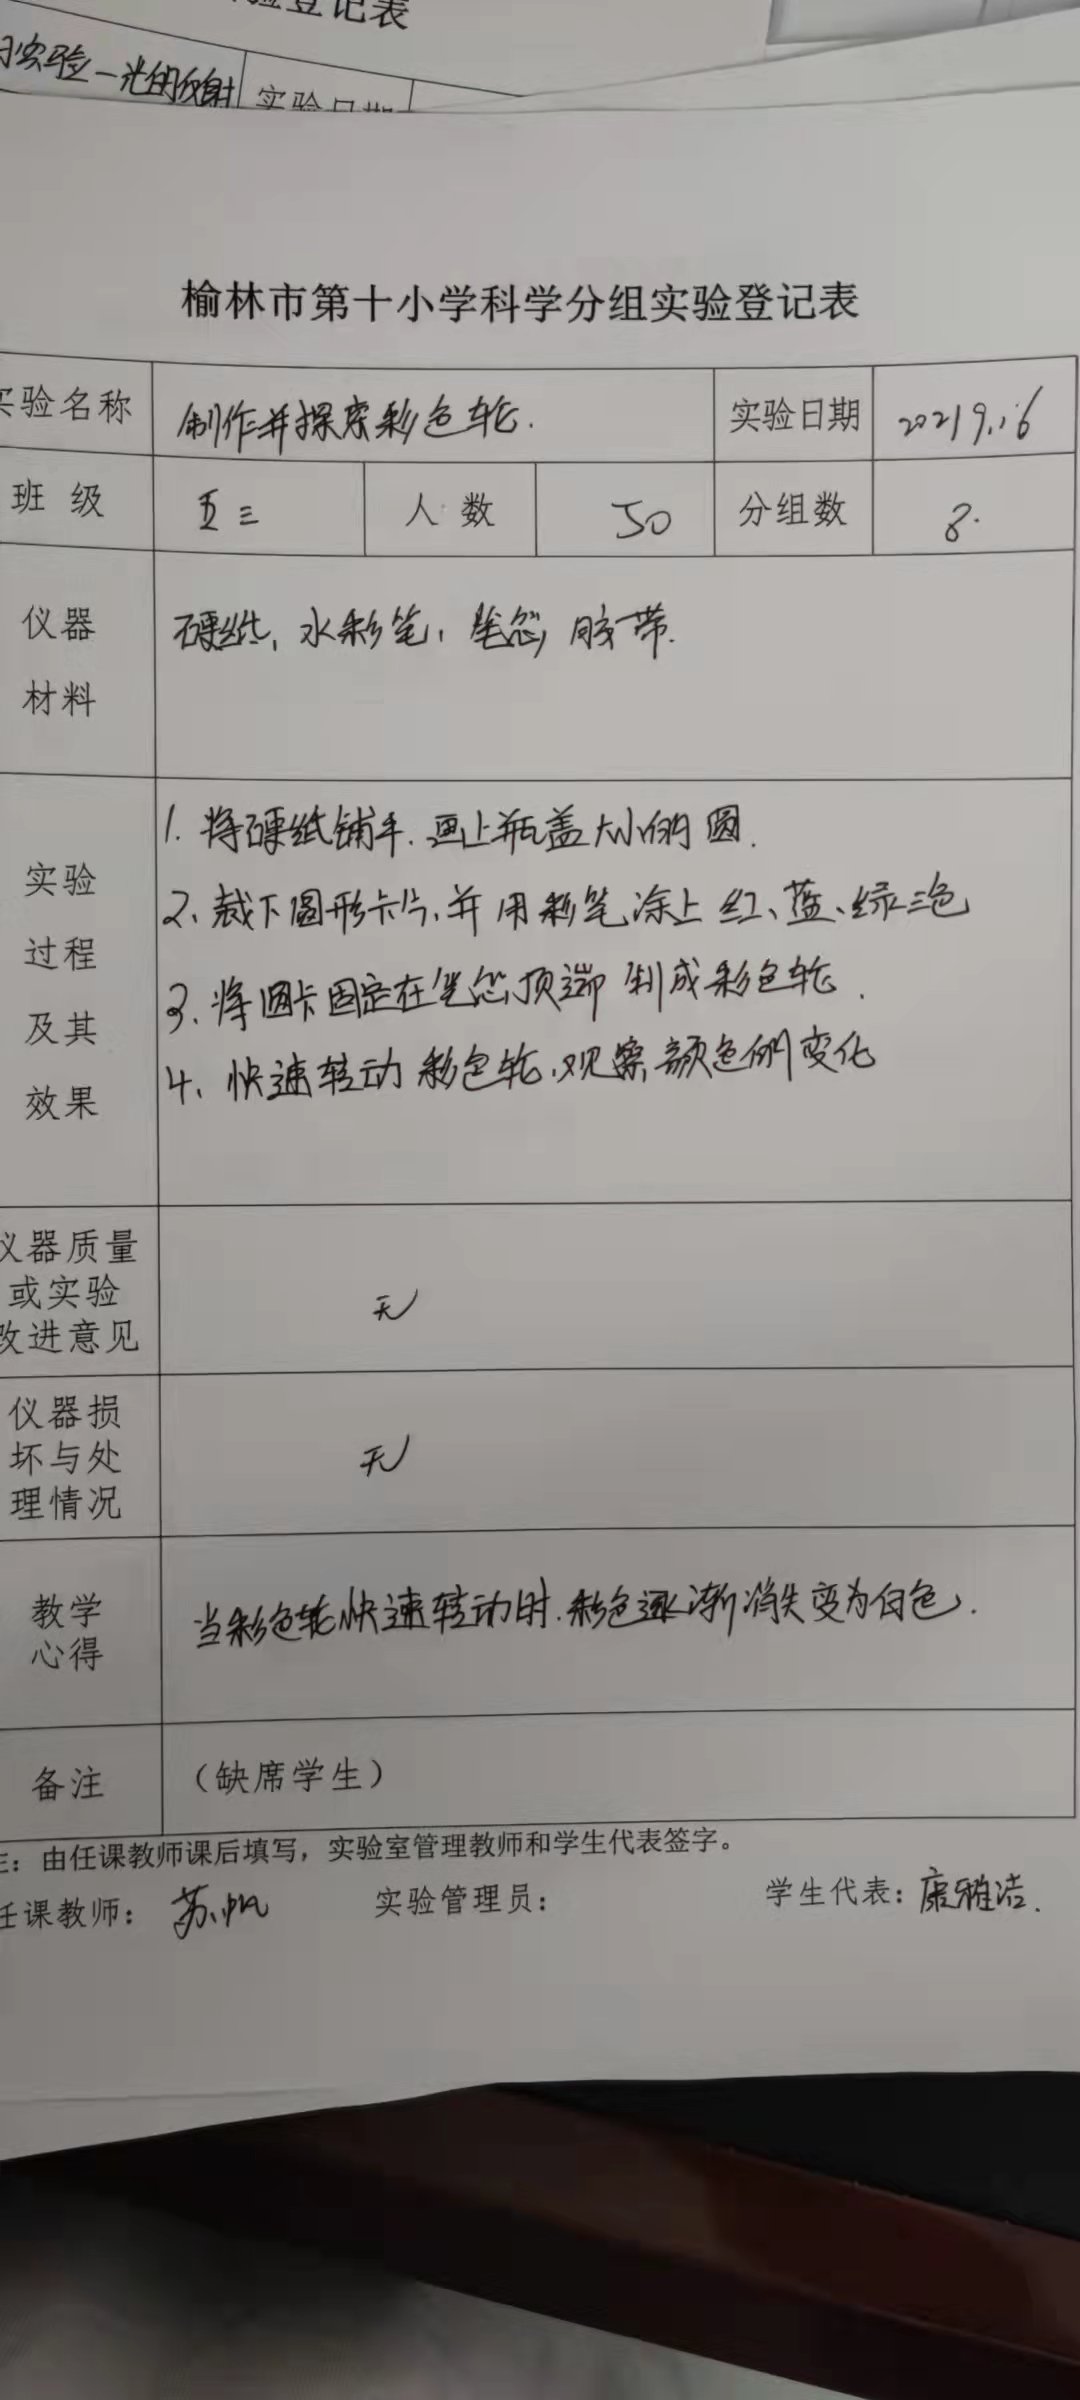 验登记表
实验一光的反射 实验日期
榆林市第十小学科学分组实验登记表
实验名称 制作并探索彩色轮. 实验日期 2021 9.16
班 级 五三 人 数 50 分组数 8.
仪器
材料
硬纸、水彩笔，笔芯，胶带.
实验
过程
及其
效果
1. 将硬纸铺平.画上瓶盖大小的圆.
2、裁下圆形卡片、并用彩笔涂上红、蓝、绿三色
3、将圆卡固定在笔芯顶端 制成彩色轮.
4、快速转动彩色轮、观察颜色的变化
仪器质量
或实验
改进意见
无
仪器损
坏与处
理情况
无
教学
心得
当彩色轮快速转动时.彩色逐渐消失变为白色.
备注 （缺席学生）
注：由任课教师课后填写，实验室管理教师和学生代表签字。
任课教师：苏帆 实验管理员： 学生代表：康雅洁.